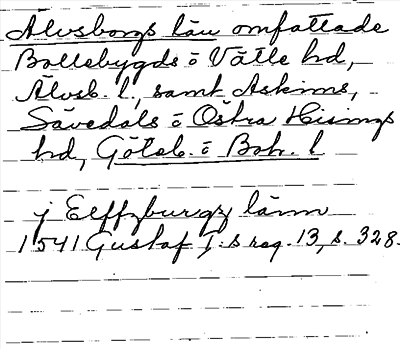 Älvsborgs län omfattade
Bollebygds o Vätle hd,
Älvsb. l., samt Askims,
Sävedals o Östra Hisings
hd, Göteb. o Boh. l
j Elffzburgz länn
1541 Gustaf I:s reg. 13, s. 328.